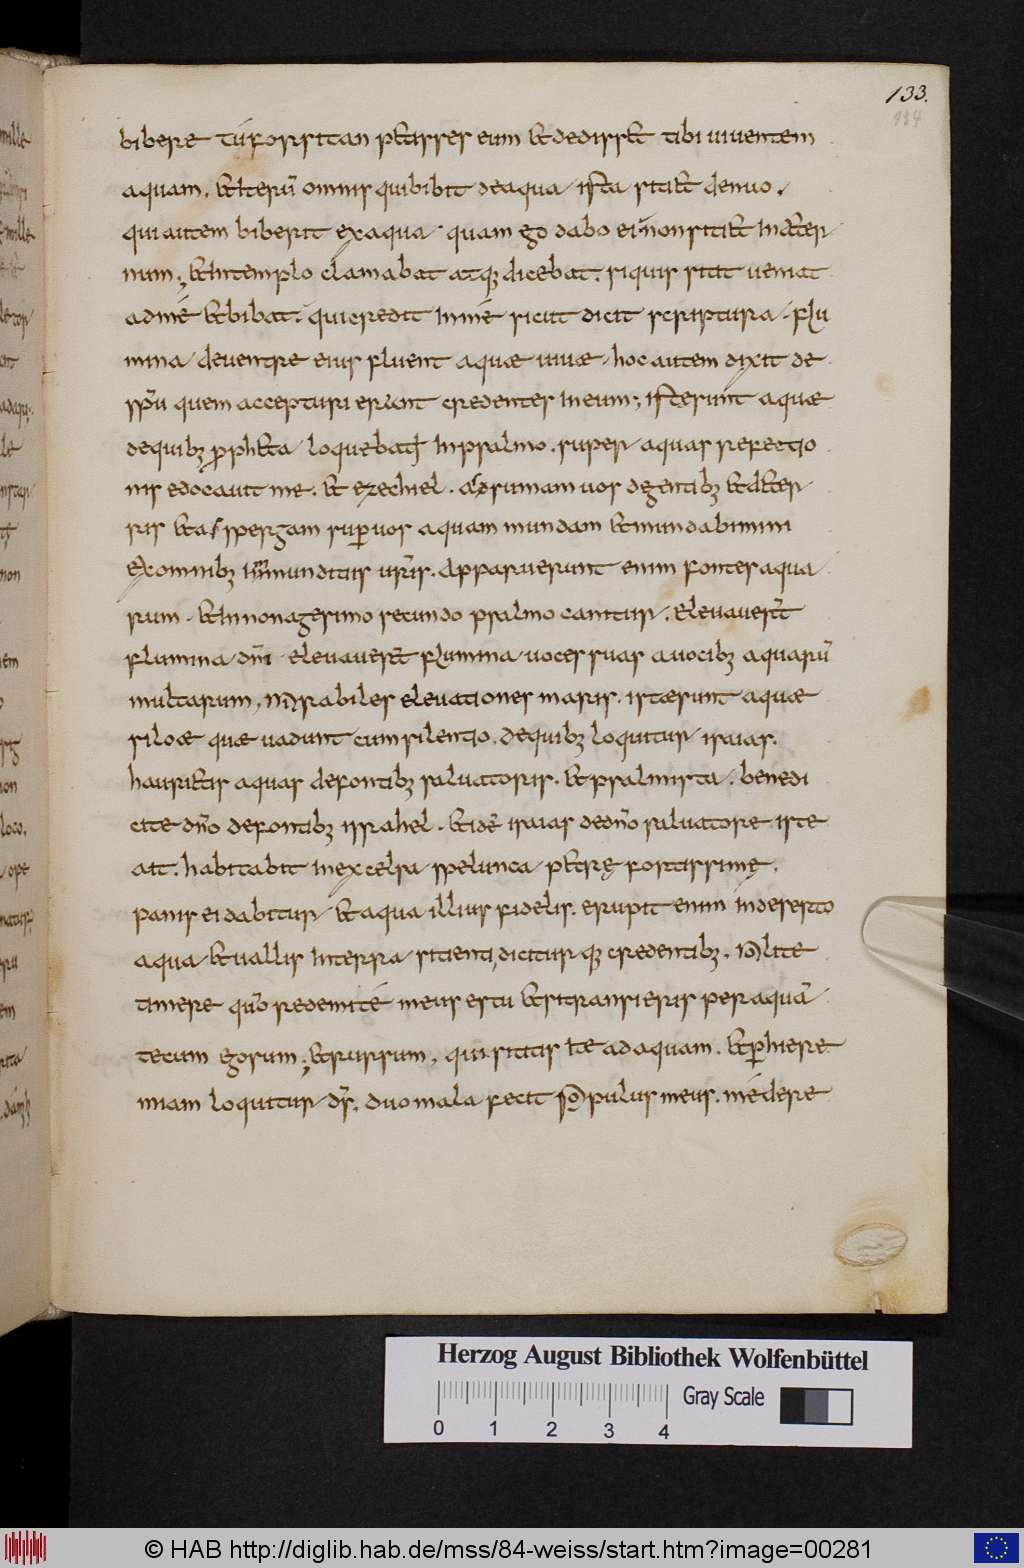 133.
134
bibere tu forsitan petisses eum et dedisset tibi viventem
aquam. et iterū omnis qui bibit de aqua ista sitiet denuo.
qui autem biberit ex aqua quam ego dabo ei non sitiet in eter
num; et in templo clamabat atq; dicebat. si quis sitit veniat
ad me et bibat. qui credit in me sicut dicit scriptura. flu
mina de ventre eius fluent aquæ vivæ. hoc autem dixit de
spū quem accepturi erant credentes in eum; iste sunt aquæ
de quib; propheta loquebat in psalmo. super aquas refectio
nis edocavit me. et ezechiel. adsumam vos de gentib; et de ter
ris et aspergam super vos aquam mundam et mundabimini
ex omnib; immunditiis vr̄is. Apparuerunt enim fontes aqua
rum. et in nonagesimo secundo psalmo canitur. Elevaver̄t
flumina dn̄i elevaver̄t flumina voces suas a vocib; aquarū
multarum, mirabiles elevationes maris. istæ sunt aquæ
siloæ quæ vadunt cum silentio. de quib; loquitur isaias.
haurietis aquas de fontib; salvatoris. et psalmista. benedi
cite dn̄o de fontib; israhel. et idē isaias de dn̄o salvatore iste
ait. habitabit in excelsa spelunca petrę fortissimę.
panis ei dabitur et aqua illius fidelis. erupit enim in deserto
aqua et vallis in terra sitienti, dicitur q; credentib;. nolite
timere quō redemi te meus es tu et si transieris per aquā
tecum ego sum; et rursum, qui sititis ite ad aquam. et per hiere
miam loquitur dr̄. duo mala fecit populus meus. me dere
Herzog August Bibliothek Wolfenbüttel
Gray Scale
0 1 2 3 4
© HAB http://diglib.hab.de/mss/84-weiss/start.htm?image=00281